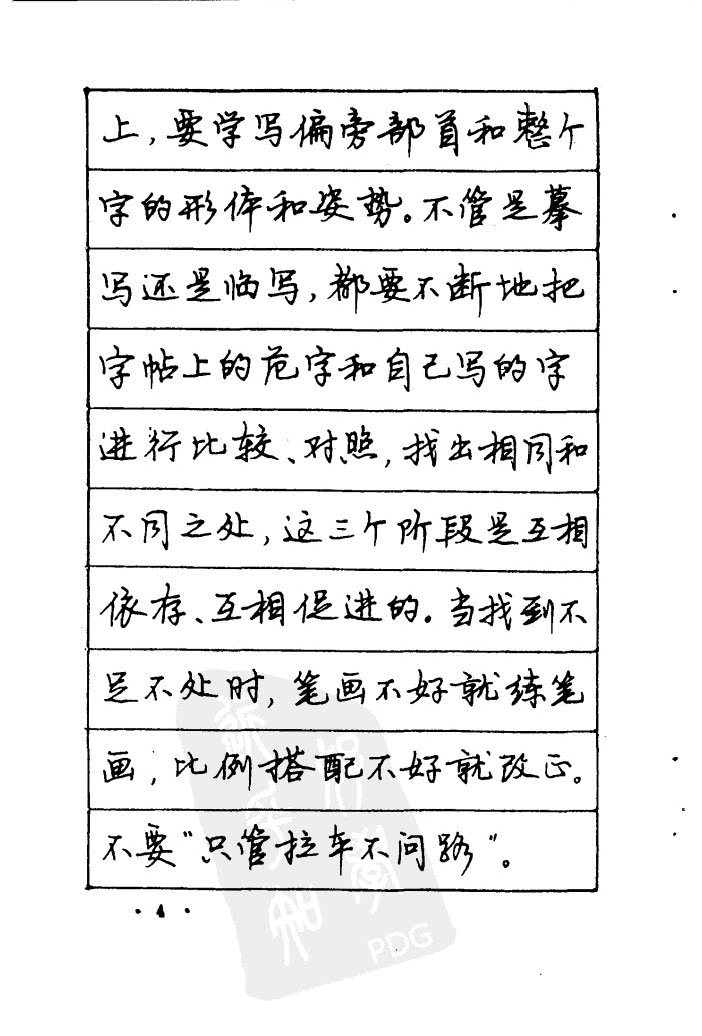 上，要学写偏旁部首和整个
字的形体和姿势。不管是摹
写还是临写，都要不断地把
字帖上的范字和自己写的字
进行比较、对照，找出相同和
不同之处，这三个阶段是互相
依存、互相促进的。当找到不
足不处时，笔画不好就练笔
画，比例搭配不好就改正。
不要"只管拉车不问路"。
· 4 ·
PDG